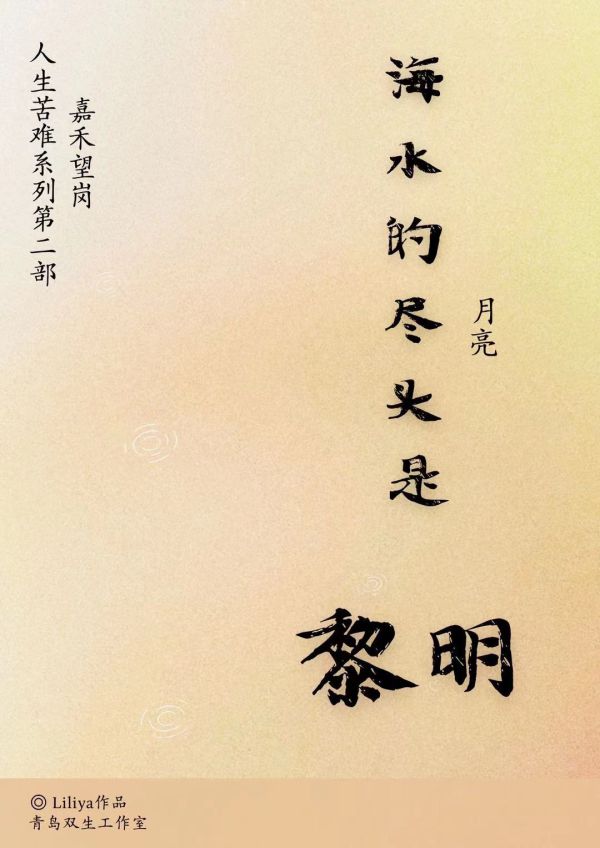 海水的尽头是
黎明
月亮
嘉禾望岗
人生苦难系列第二部
◎ Liliya作品
青鸟双生工作室